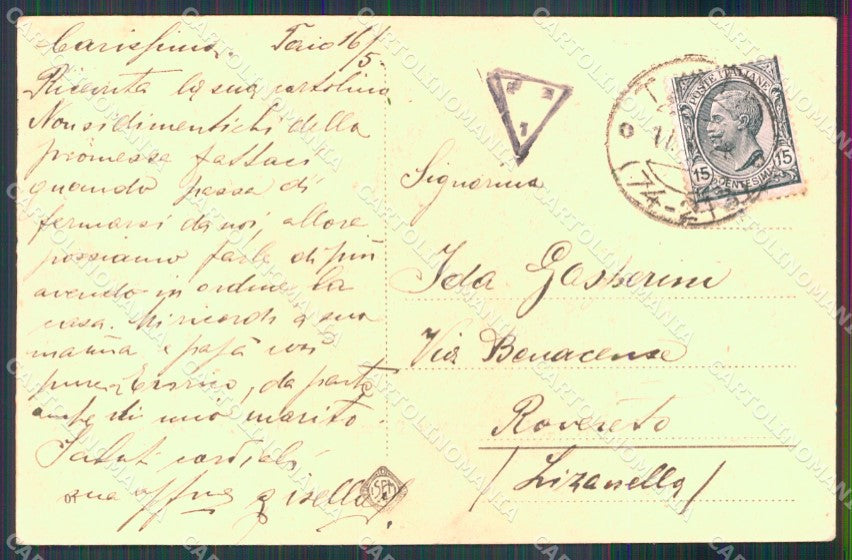 Carissima. Torio 16/5.
Ricevuta la sua cartolina
Non si dimentichi della
promessa fattaci
quando passa di
fermarsi da noi, allora
possiamo farle di più
avendo in ordine la
casa. Mi ricordi a sua
mamma e papà così
pure Enrico, da parte
anche di mio marito.
Saluti cordiali
sua affma Gisella
01
1
Signorina
Ida Gasperini
Via Benacense
Rovereto
(Lizzanella)
POSTE ITALIANE
15 15
CENTESIMI
(74-21)
CARTOLINOMANIA